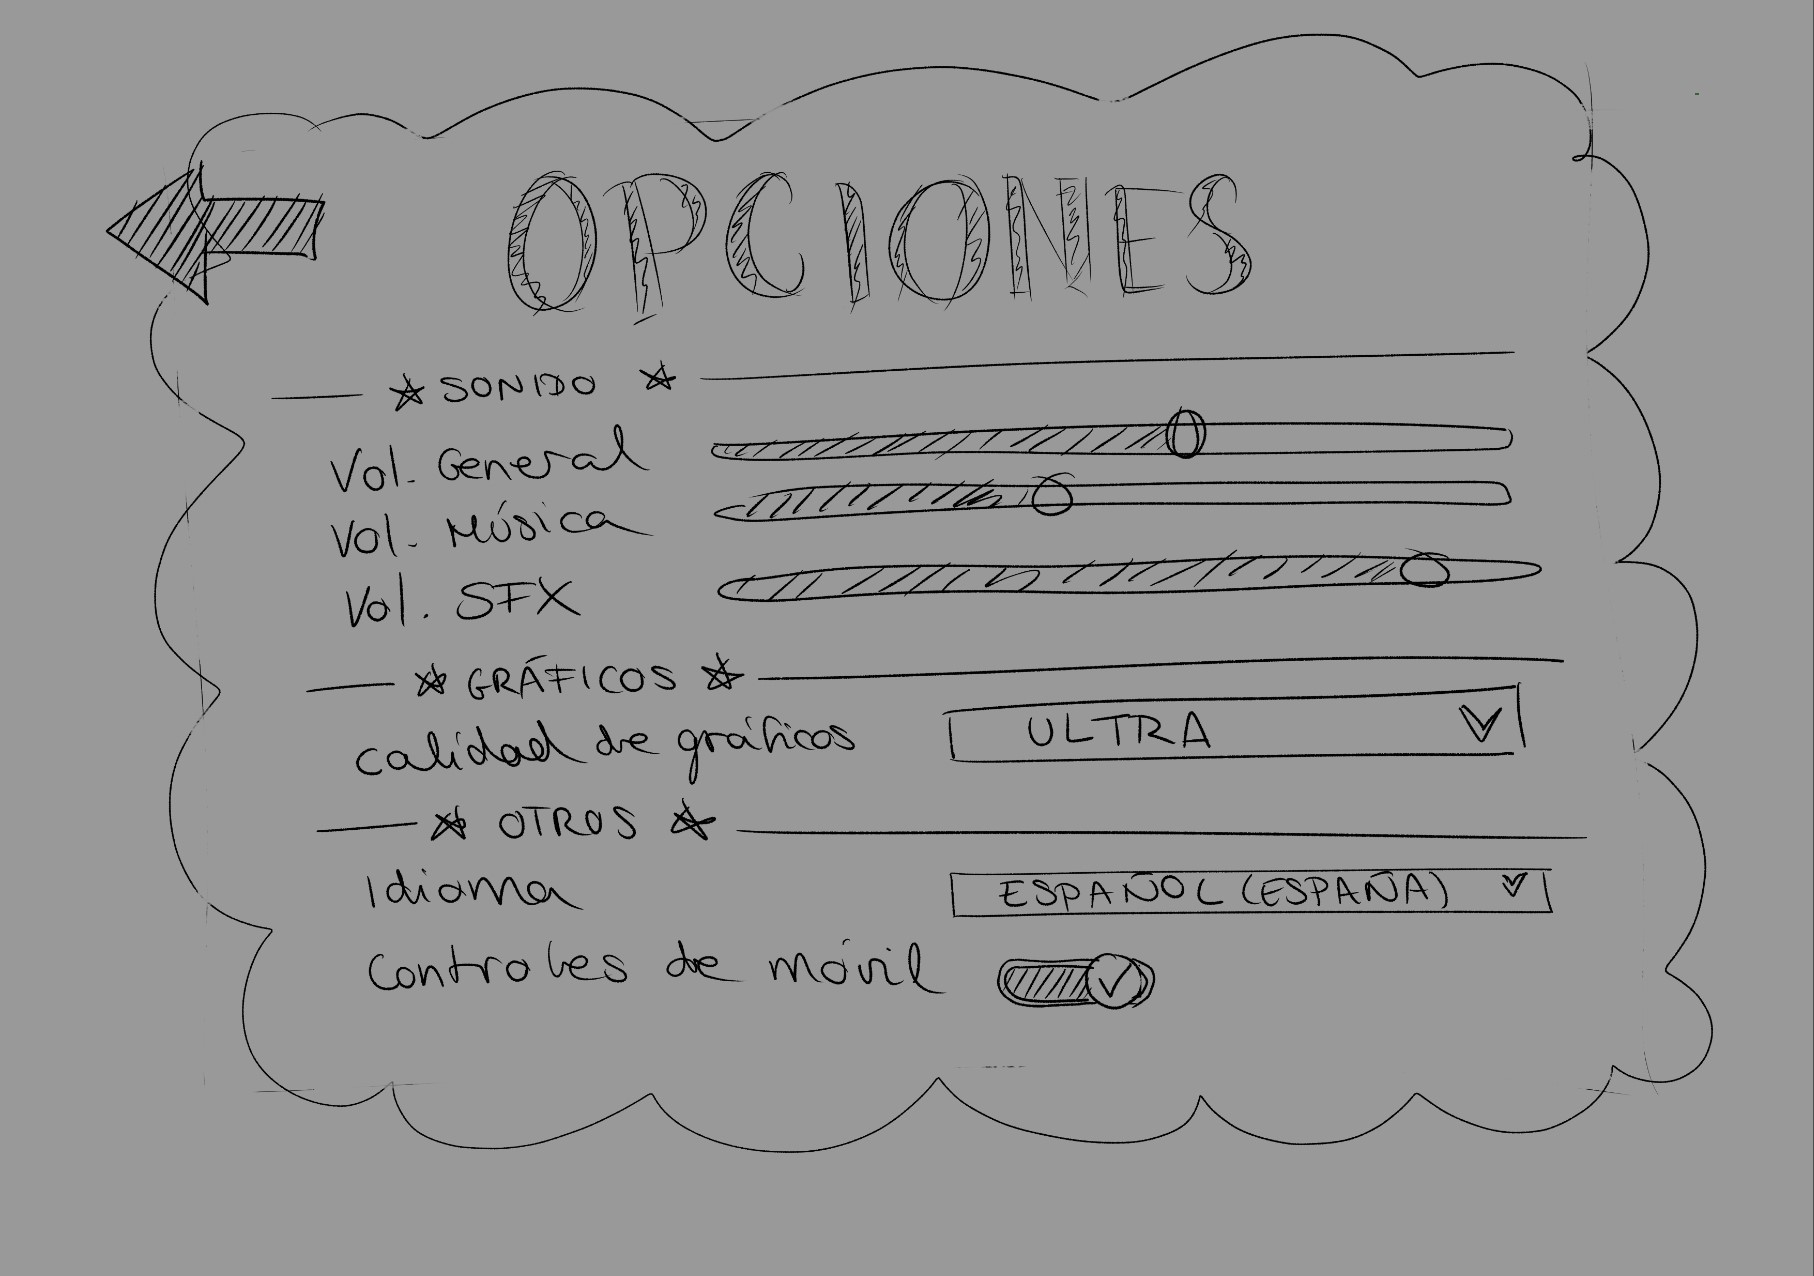 OPCIONES
SONIDO
Vol. General
Vol. Música
Vol. SFX
GRÁFICOS
calidad de gráficos
ULTRA
OTROS
Idioma
ESPAÑOL (ESPAÑA)
Controles de móvil